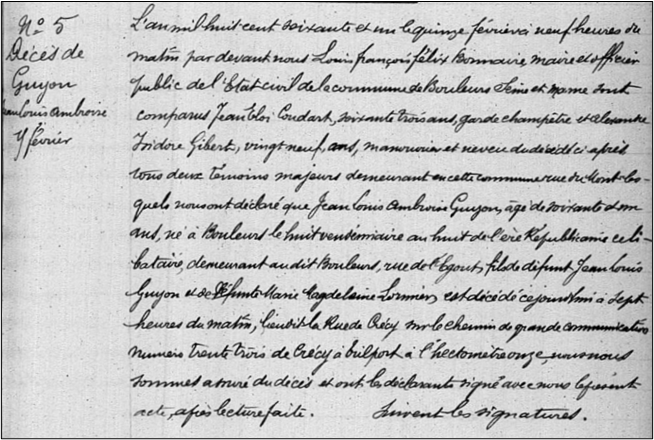 No 5
Décès de
Guyon
Jean Louis Ambroise
février
L'an mil huit cent soixante et un le quinze février à neuf heures du
matin par devant nous Louis françois félix Bonnaire, maire et officier
public de l'Etat civil de la commune de Bouleurs Seine et Marne sont
comparus Jean Eloi Coudart, soixante trois ans, garde champêtre et Alexandre
Isidore Gibert, vingt neuf ans, manouvrier et neveu du décédé ci après
tous deux témoins majeurs demeurant en cette commune rue du Mont les-
quels nous ont déclaré que Jean Louis Ambroise Guyon, âgé de soixante et un
ans, né à Bouleurs le huit vendémiaire an huit de l'ère Républicaine céli-
bataire, demeurant au dit Bouleurs, rue de l'Egout, fils de défunt Jean Louis
Guyon et de défunte Marie Magdelaine Lormier, est décédé ce jourd'hui à sept
heures du matin, lieudit la Rue de Crécy sur le chemin de grande communication
numéro trente trois de Crécy à trilport à l'hectomètre onze, nous nous
sommes assuré du décès et ont les déclarants signé avec nous le présent
acte, après lecture faite. Suivent les signatures.